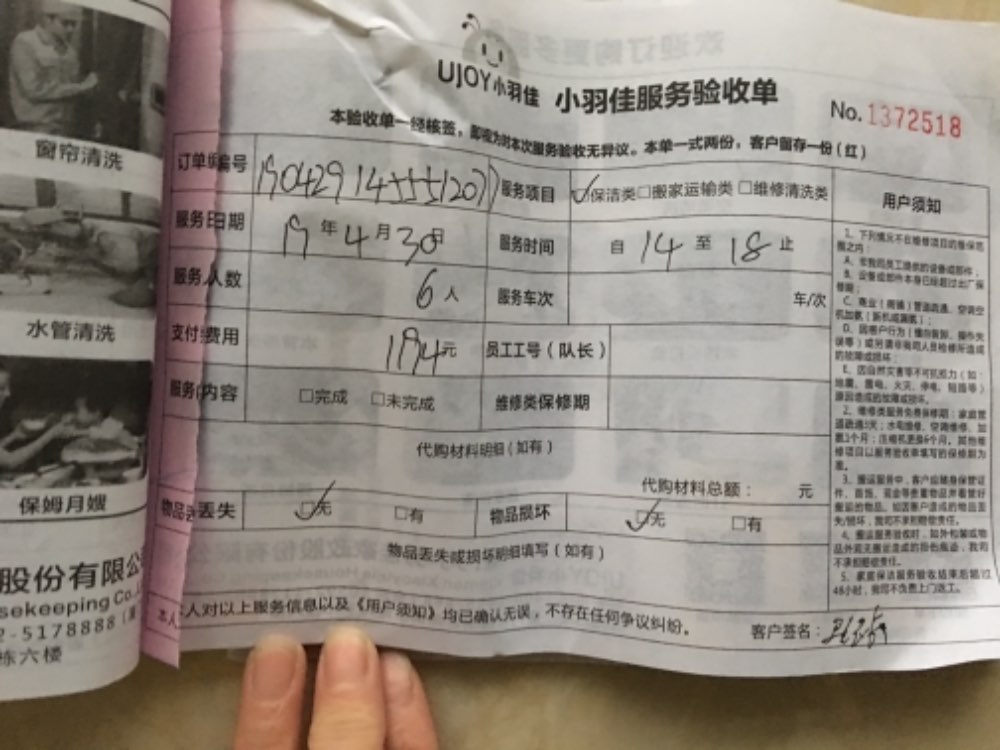 窗帘清洗
水管清洗
保姆月嫂
股份有限公
sekeeping Co.
2-5178888
栋六楼
UJOY小羽佳 小羽佳服务验收单
No.1372518
本验收单一经核签，即视为对本次服务验收无异议。本单一式两份，客户留存一份(红)
订单编号 服务项目 ☑保洁类□搬家运输类□维修清洗类
服务日期 19年4月30日 服务时间 自14至18止
服务人数 6人 服务车次 车/次
支付费用 194元 员工工号(队长)
服务内容 □完成 □未完成 维修类保修期
代购材料明细(如有)
代购材料总额： 元
物品丢失 ☑无 □有 物品损坏 ☑无 □有
物品丢失或损坏明细填写(如有)
本人对以上服务信息以及《用户须知》均已确认无误，不存在任何争议纠纷。
客户签名：
用户须知
1、下列情况不在维修项目的维保范
围之内：
A、非我司员工提供的设备或部件；
B、设备或部件本身已经超过出厂保
修期；
C、商业（商铺）管道疏通、空调空
机加氨（新机或漏氨）；
D、因用户行为（撞击毁卸、操作失
误等）或另请非我司人员检修所造成
的故障或损坏；
E、因自然灾害等不可抗拒力（如：
地震、雷电、火灾、停电、短路等）
原因造成的故障或损坏。
2、维修类服务免费保修期：家庭管
道疏通3天；水电维修、空调维修、加
氨1个月；压缩机更换6个月。其他维
修项目以服务验收单填写的保修期为
准。
3、搬运服务中，客户应随身保管证
件、首饰、现金等贵重物品并看管好
搬运的物品，如因客户造成的物品丢
失/损坏，我司不承担赔偿责任。
4、搬运服务验收时，如外包装或物
品外观无搬运造成的损伤痕迹，我司
不承担赔偿责任。
5、家庭保洁服务验收结束后超过
48小时，我司不负责上门返工。